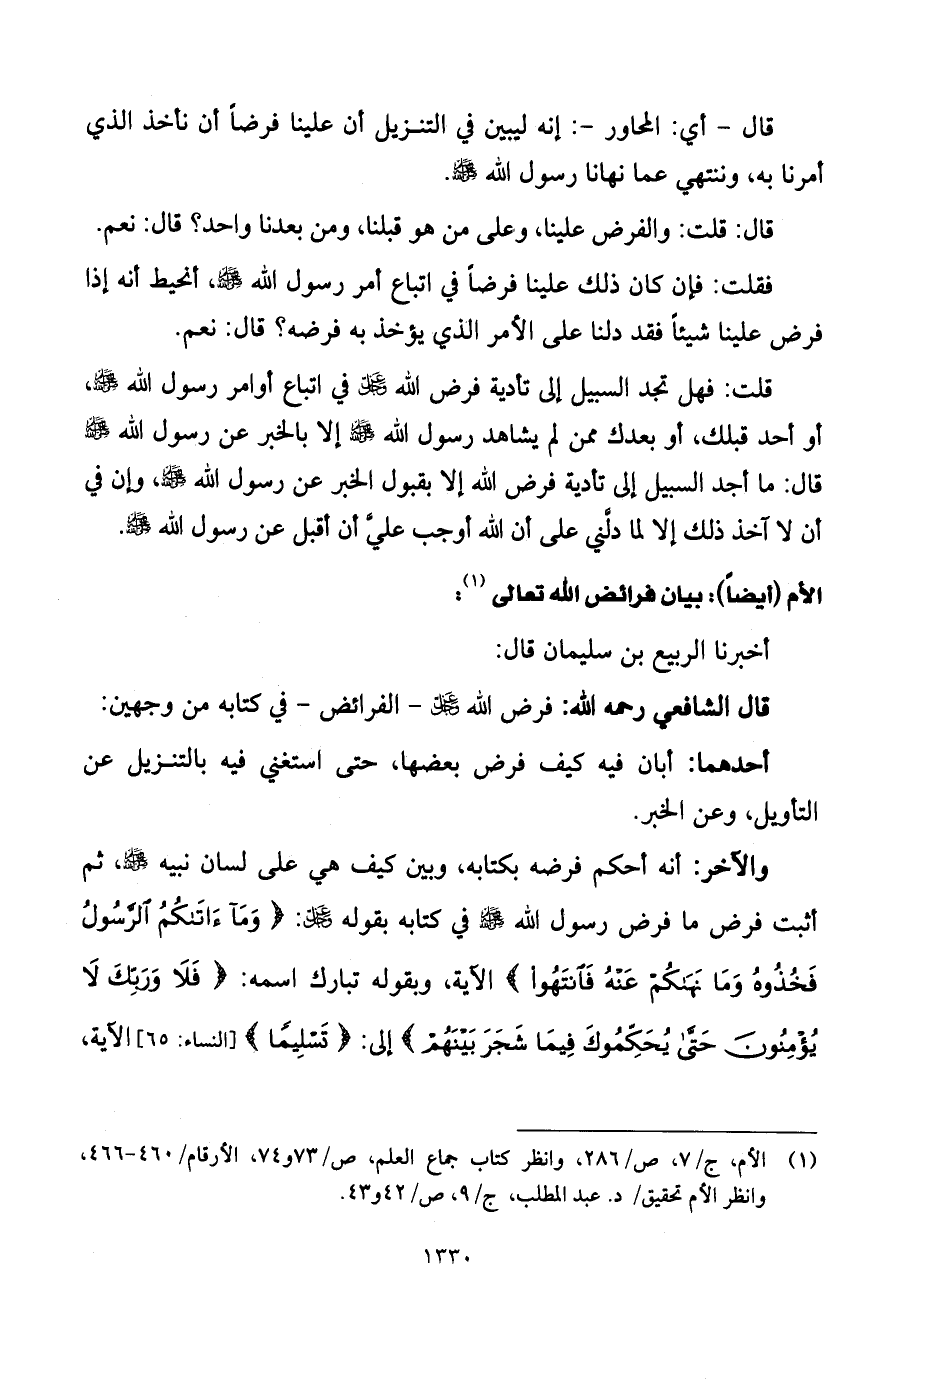 قال - أي: المحاور -: إنه ليبين في التنـزيل أن علينا فرضاً أن نأخذ الذي
أمرنا به، وننتهي عما نهانا رسول الله ﷺ.
قال: قلت: والفرض علينا، وعلى من هو قبلنا، ومن بعدنا واحد؟ قال: نعم.
فقلت: فإن كان ذلك علينا فرضاً في اتباع أمر رسول الله ﷺ، أنحيط أنه إذا
فرض علينا شيئاً فقد دلنا على الأمر الذي يؤخذ به فرضه؟ قال: نعم.
قلت: فهل تجد السبيل إلى تأدية فرض الله ﷻ في اتباع أوامر رسول الله ﷺ،
أو أحد قبلك، أو بعدك ممن لم يشاهد رسول الله ﷺ إلا بالخبر عن رسول الله ﷺ
قال: ما أجد السبيل إلى تأدية فرض الله إلا بقبول الخبر عن رسول الله ﷺ، وإن في
أن لا آخذ ذلك إلا لما دلَّني على أن الله أوجب عليَّ أن أقبل عن رسول الله ﷺ.
الأم (أيضاً): بيان فرائض الله تعالى (١):
أخبرنا الربيع بن سليمان قال:
قال الشافعي رحمه الله: فرض الله ﷻ - الفرائض - في كتابه من وجهين:
أحدهما: أبان فيه كيف فرض بعضها، حتى استغني فيه بالتنـزيل عن
التأويل، وعن الخبر.
والآخر: أنه أحكم فرضه بكتابه، وبين كيف هي على لسان نبيه ﷺ، ثم
أثبت فرض ما فرض رسول الله ﷺ في كتابه بقوله ﷻ: ﴿ وَمَآ ءَاتَىٰكُمُ ٱلرَّسُولُ
فَخُذُوهُ وَمَا نَهَىٰكُمْ عَنْهُ فَٱنتَهُوا۟ ﴾ الآية، وبقوله تبارك اسمه: ﴿ فَلَا وَرَبِّكَ لَا
يُؤْمِنُونَ حَتَّىٰ يُحَكِّمُوكَ فِيمَا شَجَرَ بَيْنَهُمْ ﴾ إلى: ﴿ تَسْلِيمًا ﴾ [النساء: ٦٥] الآية،
(١) الأم، ج/٧، ص/٢٨٦، وانظر كتاب جماع العلم، ص/٧٣و٧٤، الأرقام/٤٦٠-٤٦٦،
وانظر الأم تحقيق/ د. عبد المطلب، ج/٩، ص/٤٢و٤٣.
١٣٣٠